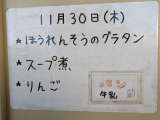 11月30日(木)
★ほうれんそうのグラタン
★スープ煮
★りんご
牛乳